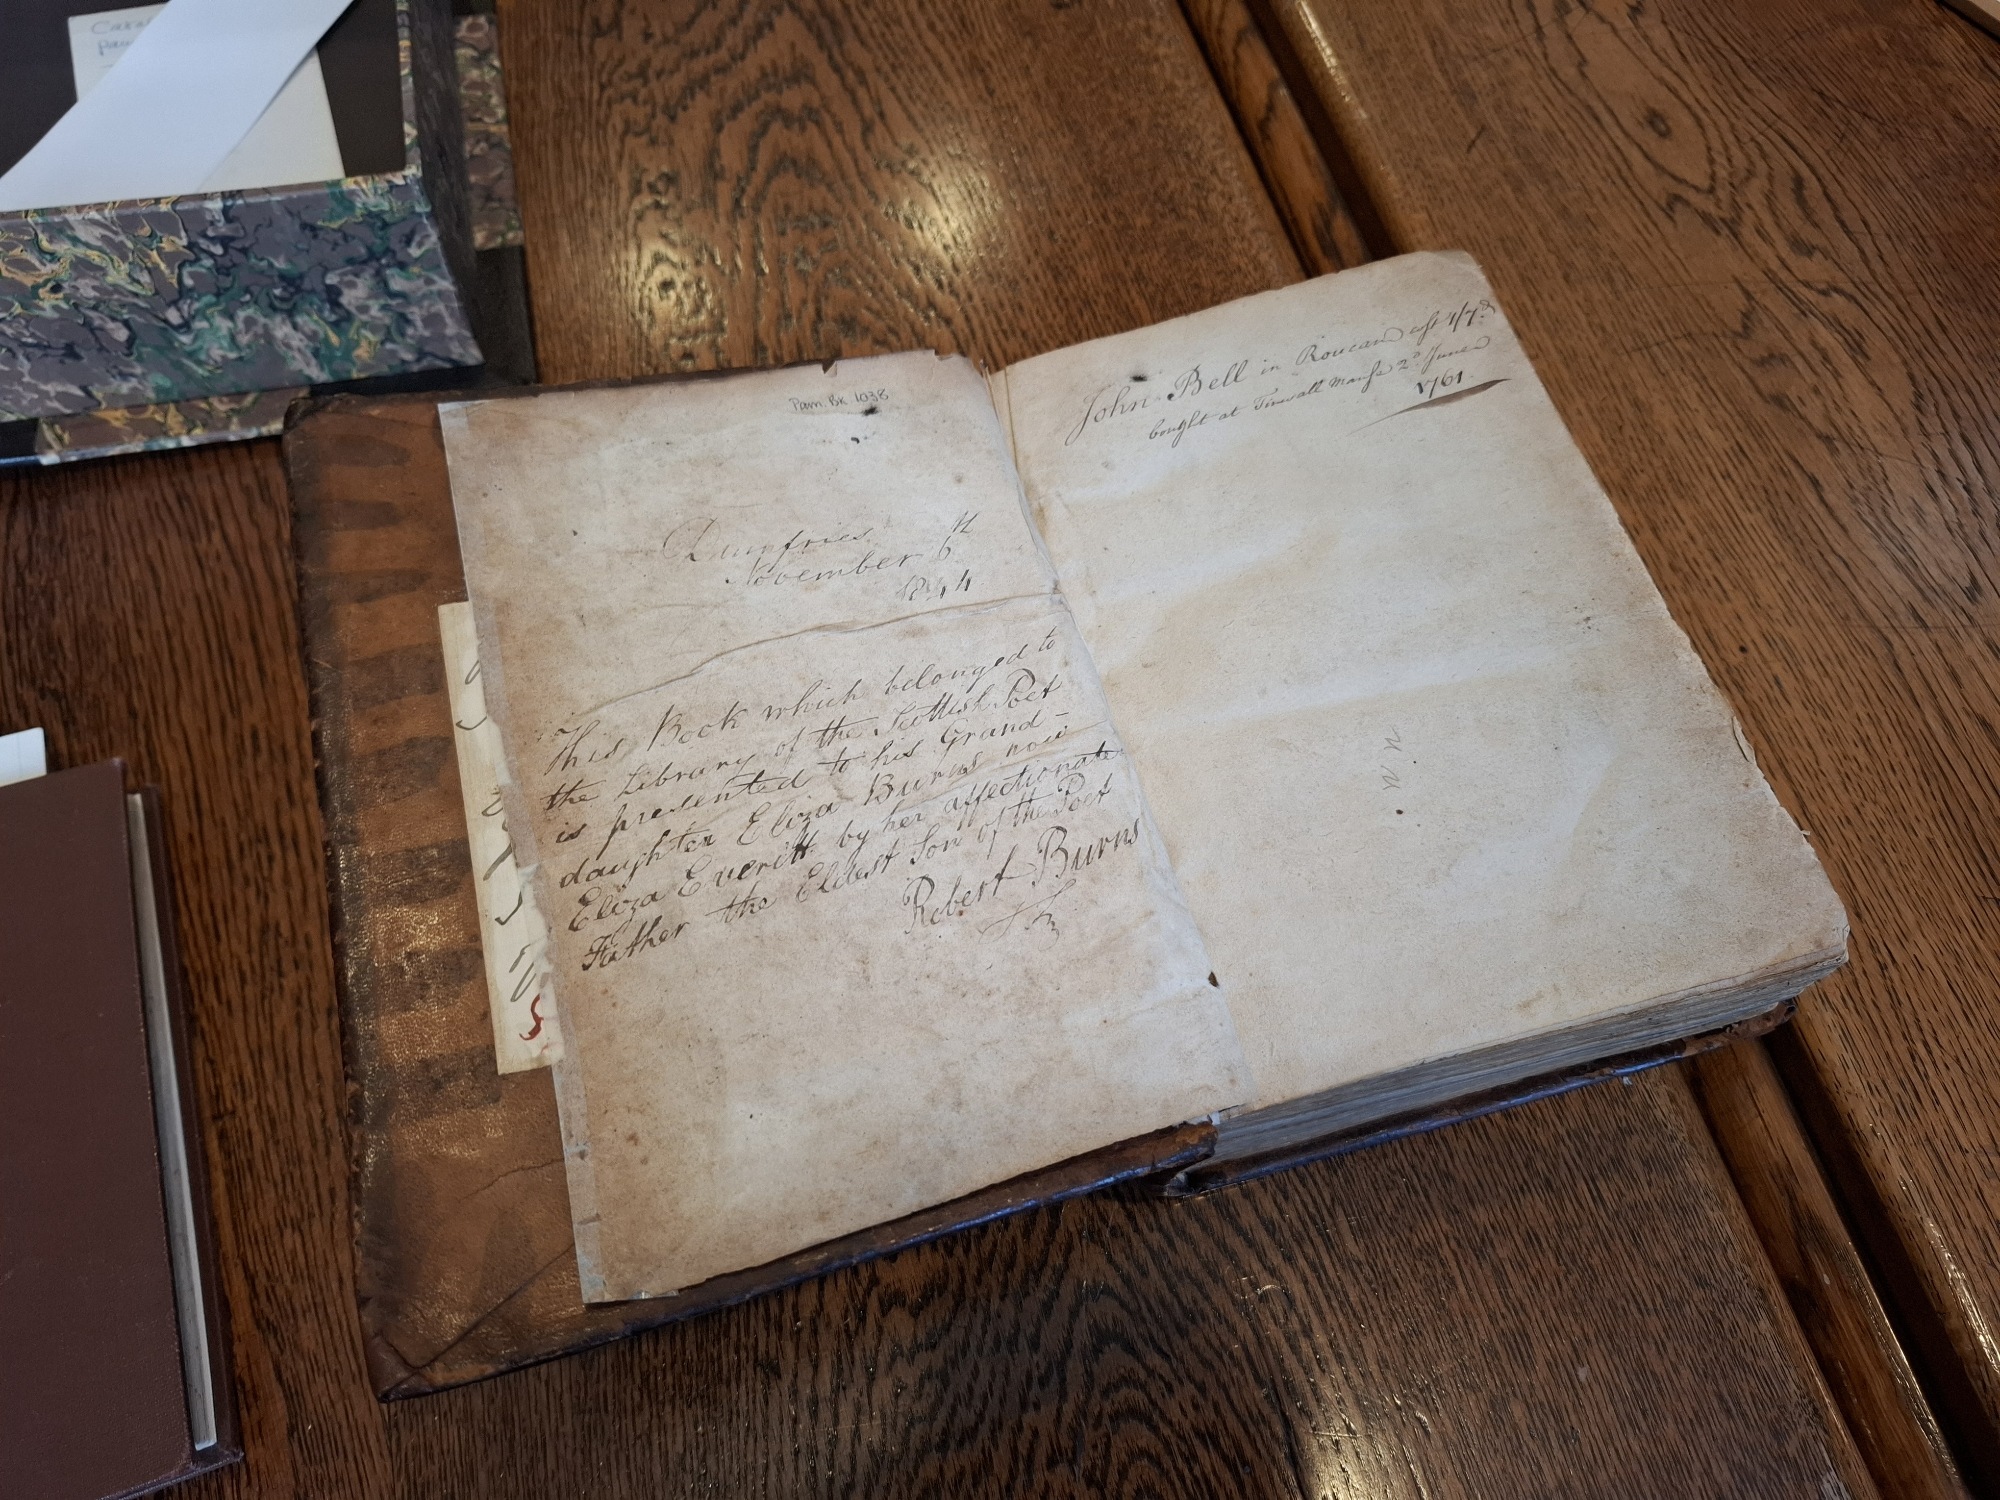 Pam. Bk 1038
Dumfries
November 6th
1844
This Book which belonged to
the Library of the Scottish Poet
is presented to his Grand-
daughter Eliza Burns now
Eliza Everitt by her affectionate
Father the Eldest Son of the Poet
Robert Burns
John Bell in Roucan cost 4/7d
bought at Tinwall Manse 2d June
1761